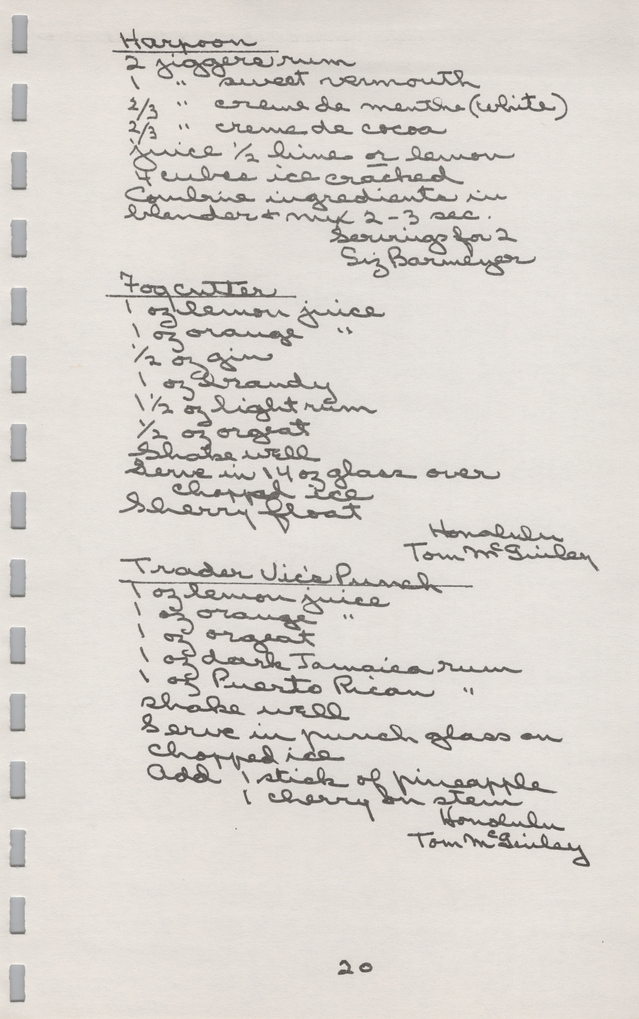 Harpoon
2 jiggers rum
1 " sweet vermouth
2/3 " creme de menthe (white)
2/3 " creme de cocoa
juice 1/2 lime or lemon
4 cubes ice cracked
Combine ingredients in
blender + mix 2-3 sec.
Servings for 2
Siz Barmeyer
Fogcutter
1 oz lemon juice
1 oz orange "
1/2 oz gin
1 oz brandy
1 1/2 oz light rum
1/2 oz orgeat
Shake well
Serve in 14 oz glass over
chopped ice
Sherry float
Honolulu
Tom McGinley
Trader Vic's Punch
1 oz lemon juice
1 oz orange "
1 oz orgeat
1 oz dark Jamaica rum
1 oz Puerto Rican "
shake well
Serve in punch glass on
chopped ice
Add 1 stick of pineapple
1 cherry on stem
Honolulu
Tom McGinley
20